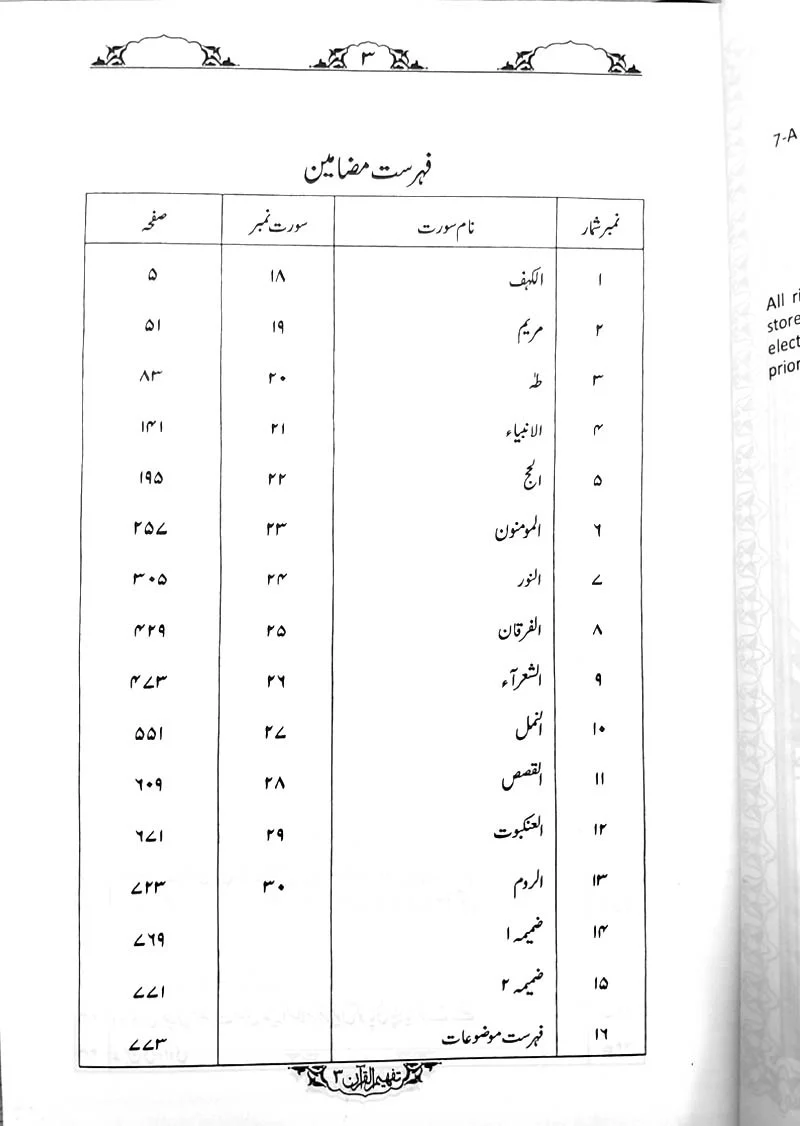 ۳
فہرست مضامین
نمبر شمار نام سورت سورت نمبر صفحہ
۱ الکہف ۱۸ ۵
۲ مریم ۱۹ ۵۱
۳ طہٰ ۲۰ ۸۳
۴ الانبیاء ۲۱ ۱۴۱
۵ الحج ۲۲ ۱۹۵
۶ المومنون ۲۳ ۲۵۷
۷ النور ۲۴ ۳۰۵
۸ الفرقان ۲۵ ۴۲۹
۹ الشعرآء ۲۶ ۴۷۳
۱۰ النمل ۲۷ ۵۵۱
۱۱ القصص ۲۸ ۶۰۹
۱۲ العنکبوت ۲۹ ۶۷۱
۱۳ الروم ۳۰ ۷۲۳
۱۴ ضمیمہ ۱ ۷۶۹
۱۵ ضمیمہ ۲ ۷۷۱
۱۶ فہرست موضوعات ۷۷۳
تفہیم القرآن ۳
7-A
All
store
elect
prior